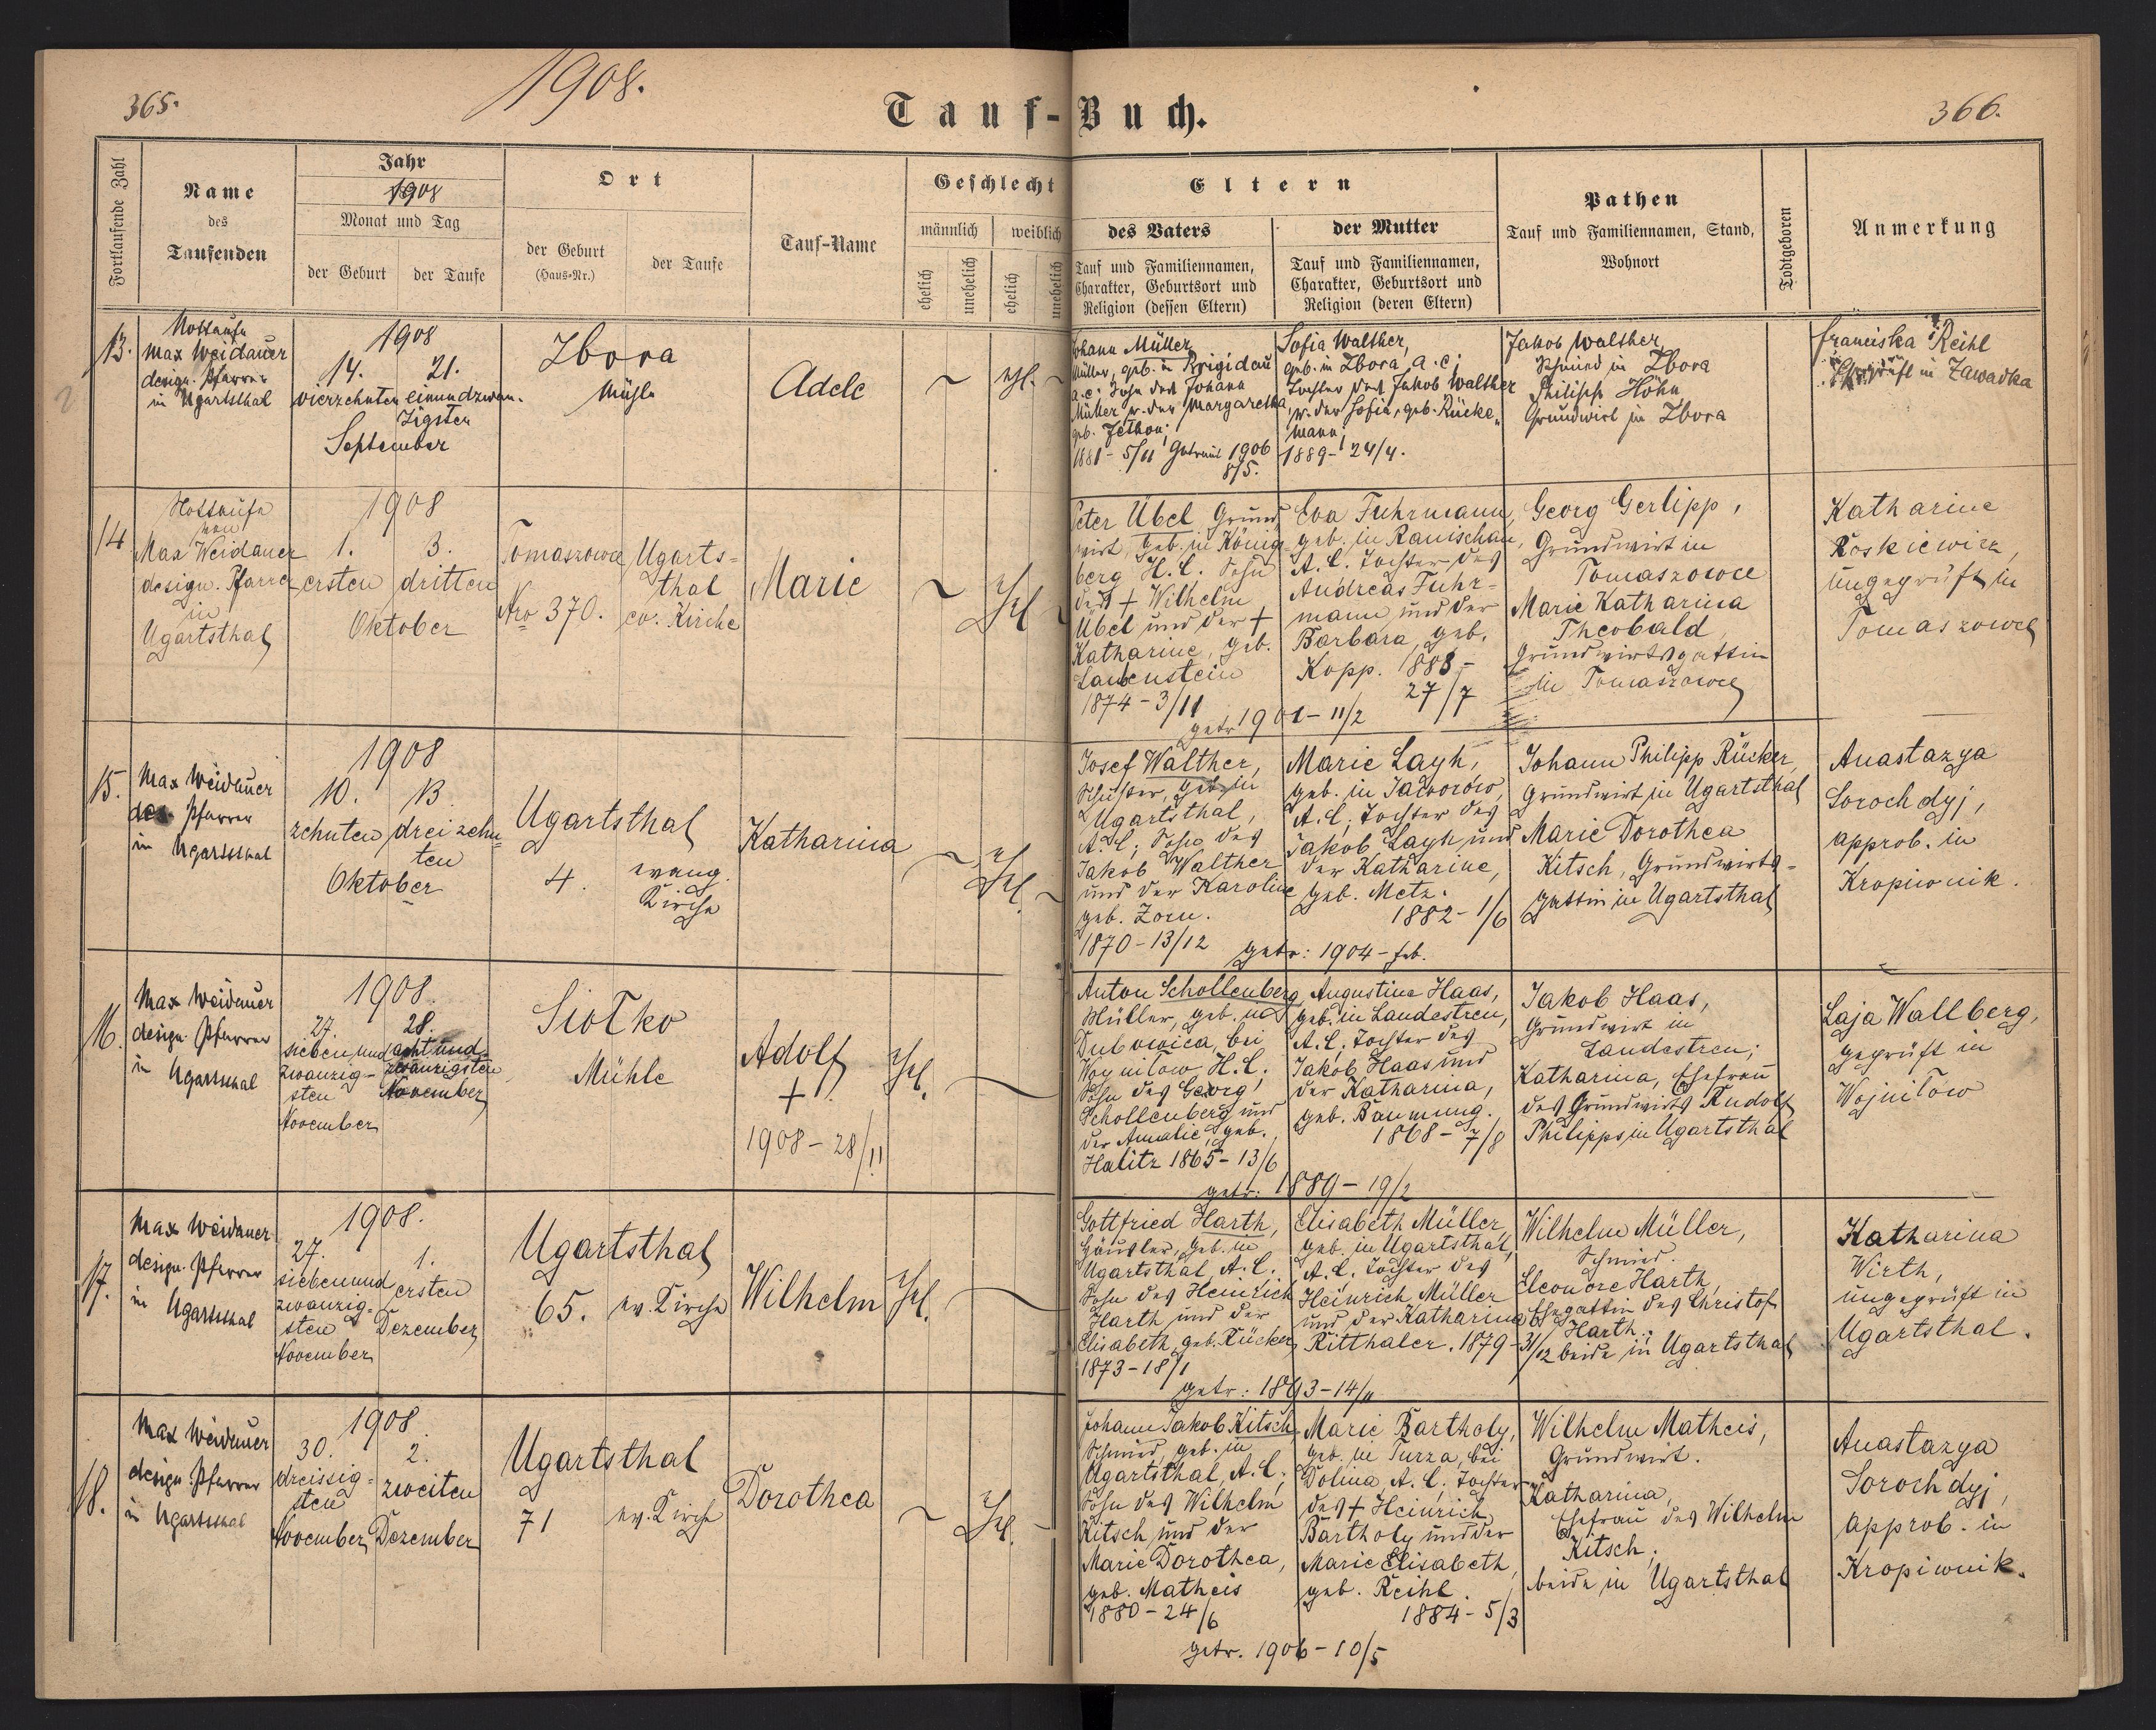 365.
1908.
Tauf-Buch.
366.
Fortlaufende Zahl
Name
des
Taufenden
Jahr
1908
Monat und Tag
der Geburt
der Taufe
Ort
der Geburt
(Haus-Nr.)
der Taufe
Tauf-Name
Geschlecht
männlich
weiblich
ehelich
unehelich
ehelich
unehelich
Eltern
des Vaters
Tauf und Familiennamen,
Charakter, Geburtsort und
Religion (dessen Eltern)
der Mutter
Tauf und Familiennamen,
Charakter, Geburtsort und
Religion (deren Eltern)
Pathen
Tauf und Familiennamen, Stand,
Wohnort
Todtgeboren
Anmerkung
13.
Nottaufe
Max Weidauer
design. Pfarrer
in Ugartsthal
1908
14. 21.
vierzehnten einundzwan-
zigsten
September
Zbora
Mühle
Adele
~ ehl. ~
Johann Müller
Müller, geb. in Brigidau
a. c. Sohn des Johann
Müller u. der Margaretha
geb. Jethon;
1881 - 5/11 Getraut 1906
8/5.
Sofia Walther,
geb. in Zbora, a. c.;
Tochter des Jakob Walther
u. der Sofia, geb. Rücke-
mann;
1889 - 24/4.
Jakob Walther
Schmied in Zbora
Philipp Höhn
Grundwirt in Zbora
Franciska Reihl
in Zawadka
14
Nottaufe
von
Max Weidauer
design. Pfarrer
in
Ugartsthal
1908
1. 3.
ersten dritten
Oktober
Tomaszowce
Nro 370.
Ugarts-
thal
ev. Kirche
Marie
~ Ehl ~
Peter Übel Grund
wirt, geb. in König-
berg H. C. Sohn
des + Wilhelm
Übel und der +
Katharine, geb.
Laubenstein
1874 - 3/11
getr. 1901 - 11/2
Eva Fuhrmann,
geb. in Ranischau,
A. C. Tochter des
Andreas Fuhr-
mann und der
Barbara, geb.
Kopp. 1888 -
27/7
Georg Gerlipp,
Grundwirt in
Tomaszowce
Marie Katharina
Theobald,
Grundwirtsgattin
in Tomaszowce
Katharine
Roskiewicz,
ungeprüft in
Tomaszowce
15.
Max Weidauer
des. Pfarrer
in Ugartsthal
1908
10. 13.
zehnten dreizehn-
ten
Oktober
Ugartsthal
4. evang.
Kirche
Katharina
~ Ehl. ~
Josef Walther,
Schuster, geb. in
Ugartsthal,
A. C.; Sohn des
Jakob Walther
und der Karoline
geb. Zorn.
1870 - 13/12
getr: 1904 - feb.
Marie Layh,
geb. in Jaworów,
A. C.; Tochter des
Jakob Layh und
der Katharine,
geb. Metz.
1882 - 1/6
Johann Philipp Rücker,
Grundwirt in Ugartsthal
Marie Dorothea
Kitsch, Grundwirts-
gattin in Ugartsthal
Anastazya
Sorochdyj,
approb. in
Kropiwnik.
16.
Max Weidauer
design. Pfarrer
in Ugartsthal
1908.
27. 28.
siebenund acht und-
zwanzig- zwanzigsten
sten November
November
Siołko
Mühle
Adolf
+
1908 - 28/11
Ehl. ~
Anton Schollenberg,
Müller, geb. in
Dubowica, bei
Woyniłow, H. C.;
Sohn des Georg
Schollenberg und
der Amalie, geb.
Halitz 1865 - 13/6
getr: 1889 - 19/2
Augustina Haas,
geb. in Landestreu,
A. C. Tochter des
Jakob Haas und
der Katharina,
geb. Baumung.
1868 - 7/8
Jakob Haas,
Grundwirt in
Landestreu;
Katharina, Ehefrau
des Grundwirts Rudolf
Philipps in Ugartsthal
Laja Wallberg,
geprüft in
Wojniłow
17.
Max Weidauer
design. Pfarrer
in Ugartsthal
1908.
27. 1.
siebenund ersten
zwanzig- Dezember
sten
November
Ugartsthal
65. ev. Kirche
Wilhelm
Ehl. ~
Gottfried Harth,
Häusler, geb. in
Ugartsthal A. C.
Sohn des Heinrich
Harth und der
Elisabeth, geb. Rücker,
1873 - 18/1
getr: 1893 - 14/11
Elisabeth Müller,
geb. in Ugartsthal,
A. C. Tochter des
Heinrich Müller
und der Katharina geb.
Ritthaler. 1879 - 31/12
Wilhelm Müller,
Schmied.
Eleonore Harth,
Ehegattin des Christof
Harth.
beide in Ugartsthal
Katharina
Wirth,
ungeprüft in
Ugartsthal.
18.
Max Weidauer
design. Pfarrer
in Ugartsthal
1908.
30. 2.
dreissig- zweiten
sten
November Dezember
Ugartsthal
71 ev. Kirche
Dorothea
~ Ehl. ~
Johann Jakob Kitsch
Schmied, geb. in
Ugartsthal, A. C.;
Sohn des Wilhelm
Kitsch und der
Marie Dorothea,
geb. Matheis
1880 - 24/6
getr. 1906 - 10/5
Marie Bartholy,
geb. in Turza, bei
Dolina, A. C.; Tochter
des + Heinrich
Bartholy und der
Marie Elisabeth,
geb. Reihl.
1884 - 5/3
Wilhelm Matheis,
Grundwirt.
Katharina,
Ehefrau des Wilhelm
Kitsch;
beide in Ugartsthal
Anastazya
Sorochdyj,
approb. in
Kropiwnik.